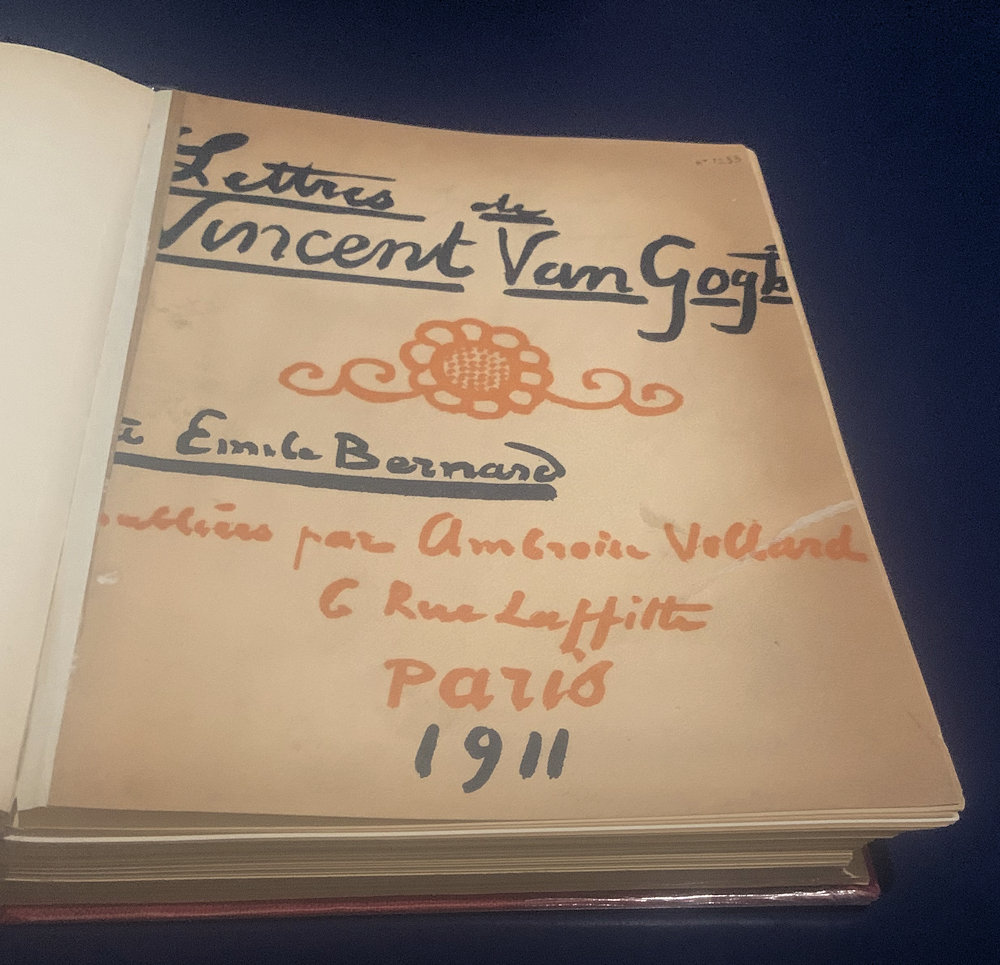 Lettres de
Vincent Van Gogh
à Emile Bernard
publiées par Ambroise Vollard
6 Rue Laffitte
Paris
1911